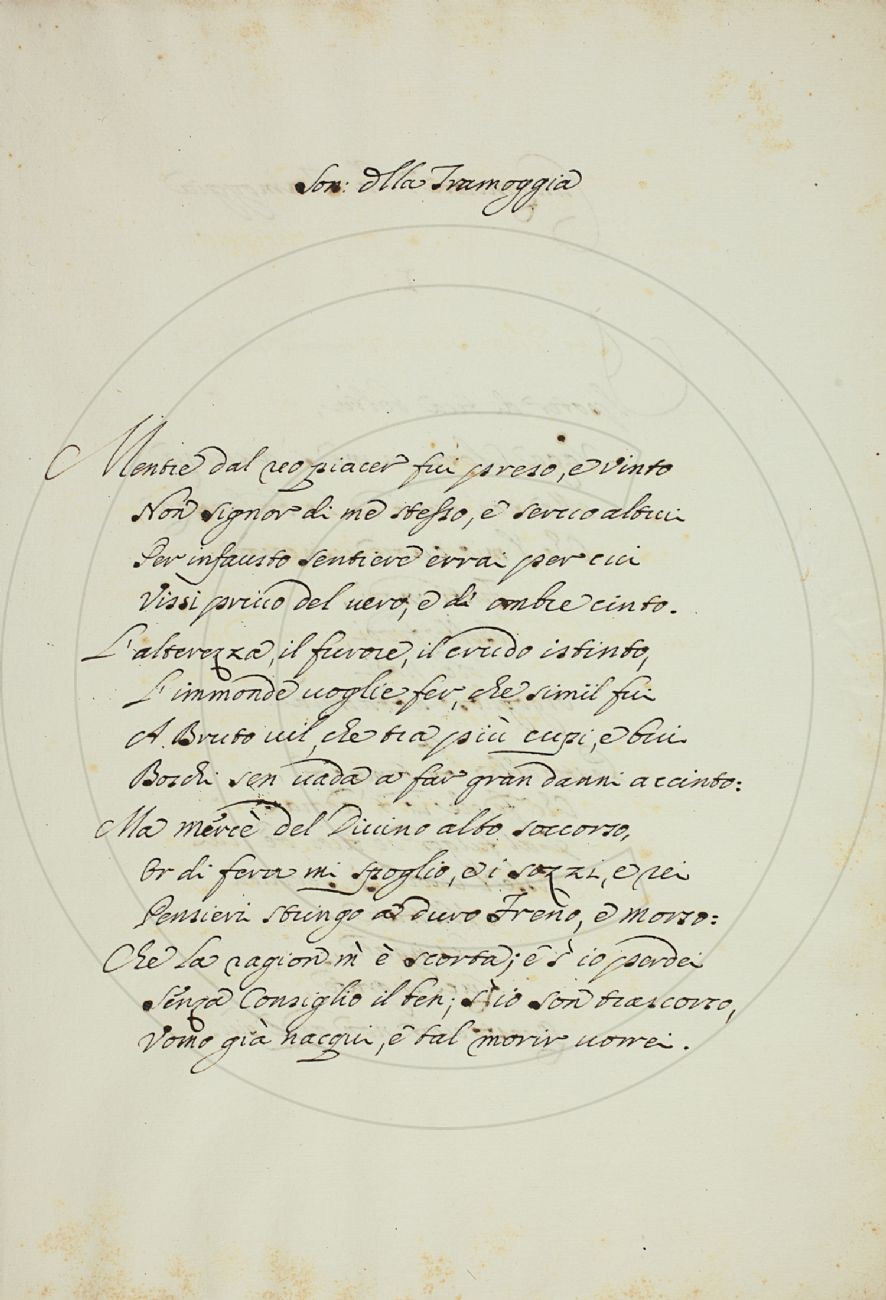 Son: dlla Tramoggia
Mentre dal reo piacer fui preso, e vinto
Non signor di me stesso, e servo altrui
Per infausto sentiere errai per cui
Vissi privo del vero, e di ombre cinto.
L'alterezza, il furore, il crudo istinto,
L'immonde voglie fer, che simil fui
A Bruto vil, che tra più cupi, e bui
Boschi sen vada a far gran danni accinto:
Ma mercè del Divino alto soccorso,
Or di fera mi spoglio, e i sozzi, e rei
Pensieri stringo a duro Freno, e morso:
Che la ragion m'è scorta; e s'io perdei
Senza Consiglio il ben; s'io son trascorso,
Vomo già nacqui, e tal morir vorrei.